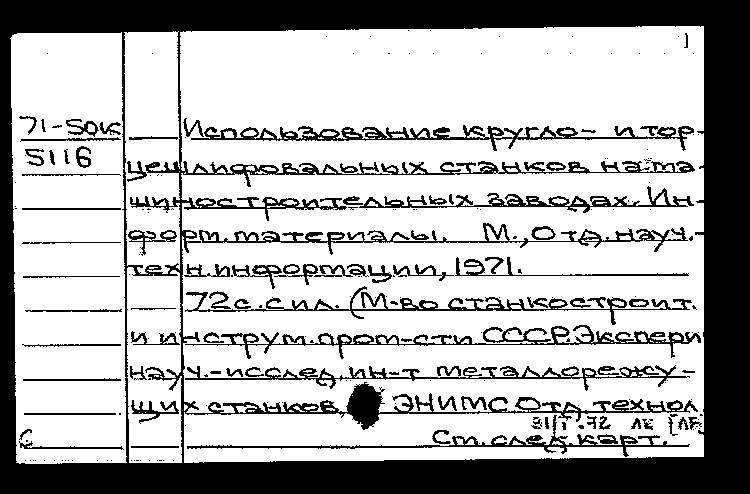 1
71-50к Использование кругло- и тор-
5116 цешлифовальных станков на ма-
шиностроительных заводах. Ин-
форм. материалы. М., Отд. науч.-
техн. информации, 1971.
72 с. с ил. (М-во станкостроит.
и инструм. пром-сти СССР. Экспери
науч.-исслед. ин-т металлорежу-
щих станков, ЭНИМС Отд. технол.
31/I.72
С Ст. след. карт.